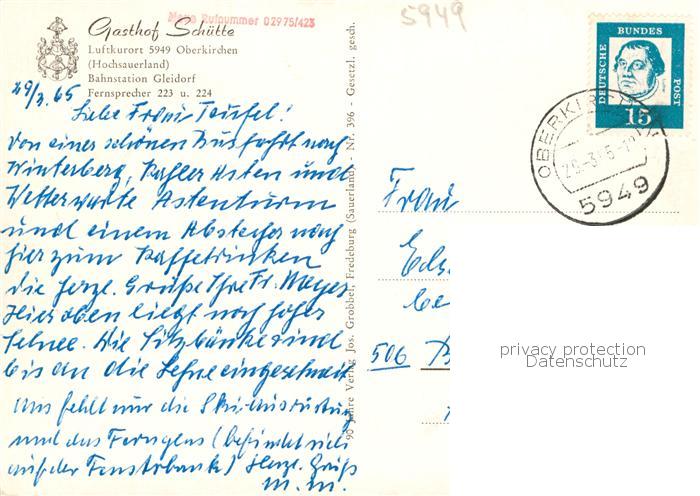 Neue Rufnummer 02975/423
5949
Gasthof Schütte
Luftkurort 5949 Oberkirchen
(Hochsauerland)
Bahnstation Gleidorf
Fernsprecher 223 u. 224
29/3.65
Liebe Frau Teufel!
Von einer schönen Busfahrt nach
Winterberg, Kahler Asten und
Wetterwarte Astenturm
und einem Abstecher nach
hier zum Kaffetrinken
die herzl. Grüße Ihre Fr. Meyer.
Hier oben liegt noch hoher
Schnee. Die Sitzbänke sind
bis an die Lehne eingeschneit
Uns fehlt nur die Ski-Ausrüstung
und das Fernglas (befindet sich
auf der Fensterbank) Herzl. Grüß
M. M.
90 Jahre Verlag Jos. Grobbel, Fredeburg (Sauerland) - Nr. 396 - Gesetzl. gesch.
DEUTSCHE BUNDES POST
15
OBERKIR
29.-3.65
5949
Frau
506
privacy protection
Datenschutz